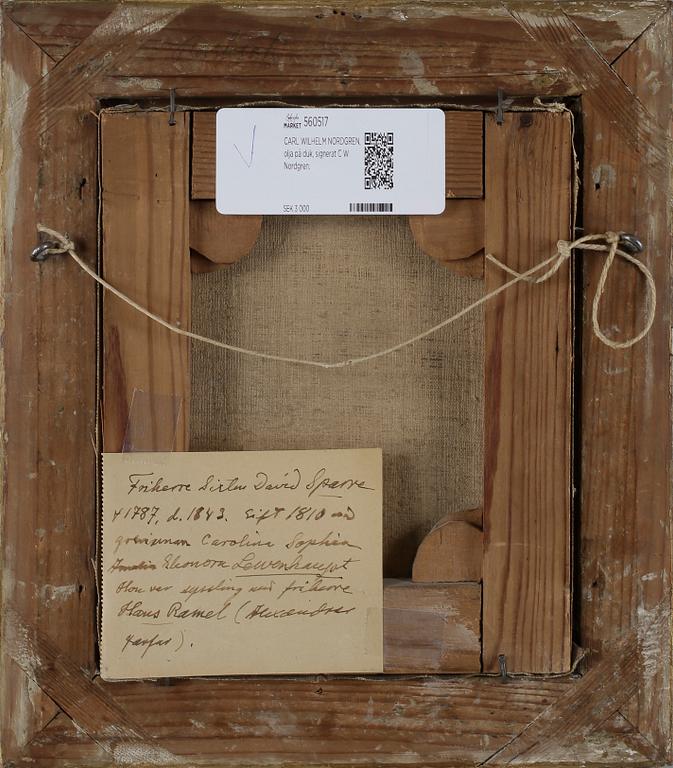 MARKET 560517
CARL WILHELM NORDGREN,
olja på duk, signerat C W
Nordgren.
SEK 3 000
Friherre Sixten David Sparre
1787, d. 1843. Gift 1810 med
grevinnan Carolina Sophia
Amalia Eleonora Lewenhaupt
Hon var syssling med friherre
Hans Ramel (Alexandras
farfar).